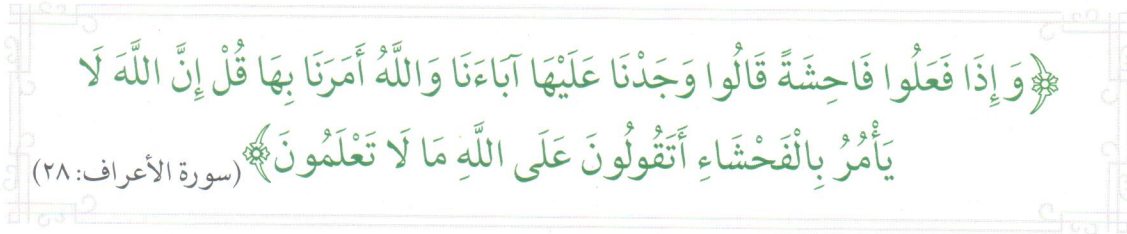 ﴿وَإِذَا فَعَلُوا فَاحِشَةً قَالُوا وَجَدْنَا عَلَيْهَا آبَاءَنَا وَاللَّهُ أَمَرَنَا بِهَا قُلْ إِنَّ اللَّهَ لَا
يَأْمُرُ بِالْفَحْشَاءِ أَتَقُولُونَ عَلَى اللَّهِ مَا لَا تَعْلَمُونَ﴾ (سورة الأعراف: ٢٨)